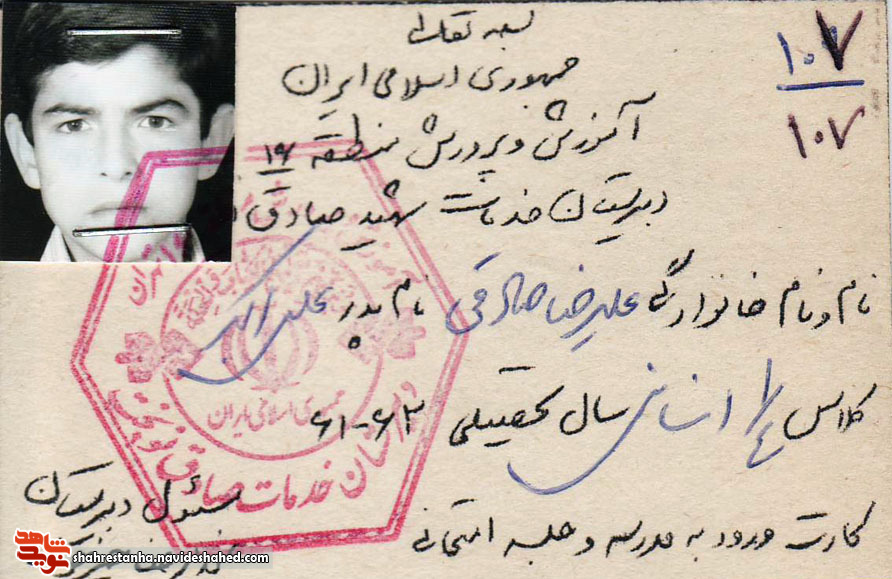 بسمه تعالی
جمهوری اسلامی ایران
آموزش و پرورش منطقه ۱۶
دبیرستان خدمات شهید صادق
۱۰۷
۱۰۷
نام و نام خانوادگی علیرضا صادقی نام پدر علی اکبر
کلاس ۱/۴ انسانی سال تحصیلی ۶۲-۶۱
کارت ورود به مدرسه و جلسه امتحانی
مسئول دبیرستان
جمهوری اسلامی ایران
دبیرستان خدمات صادق
نوید شاهد
shahrestanha.navideshahed.com